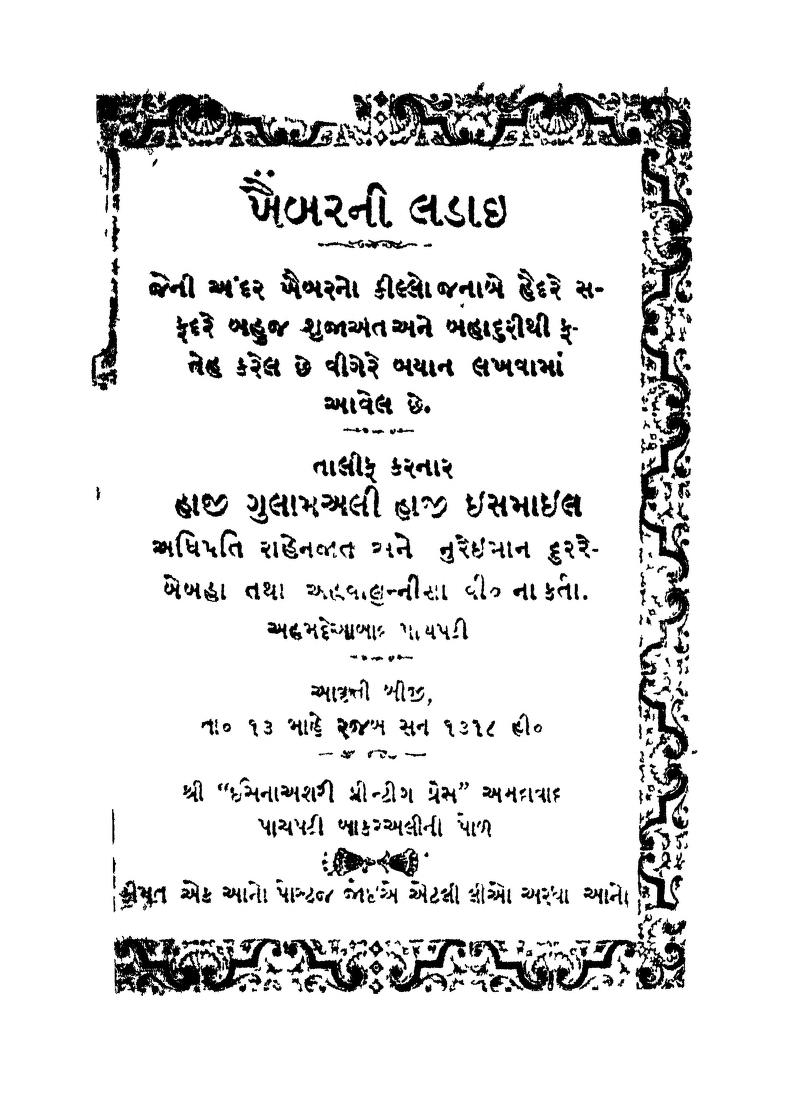 ખૈંબરની લડાઇ
જેની અંદર ખૈબરનો કીલ્લો જનાબે હૈદરે સ-
ફદરે બહુજ શુજાઅત અને બહાદુરીથી ફ-
તેહ કરેલ છે વીગેરે બયાન લખવામાં
આવેલ છે.
તાલીફ કરનાર
હાજી ગુલામઅલી હાજી ઇસમાઇલ
અધિપતિ રાહેનજાત અને નુરેઇમાન દુરરે-
બેબહા તથા અહવાલુન્નીસા વી૦ ના કર્તા.
અહમદેઆબાદ પાચપટી
આવૃત્તી બીજી,
તા૦ ૧૩ માહે રજબ સન ૧૩૧૮ હી૦
શ્રી “ઇસનાઅશરી પ્રીન્ટીગ પ્રેસ” અમદાવાદ
પાચપટી બાકરઅલીની પોળ
કીમત એક આનો એટલી અરધા આનો